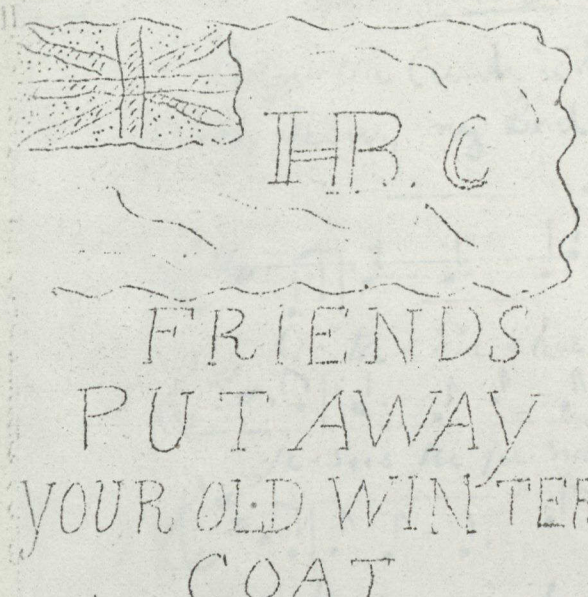 H.B.C
FRIENDS
PUT AWAY
YOUR OLD WINTER
COAT